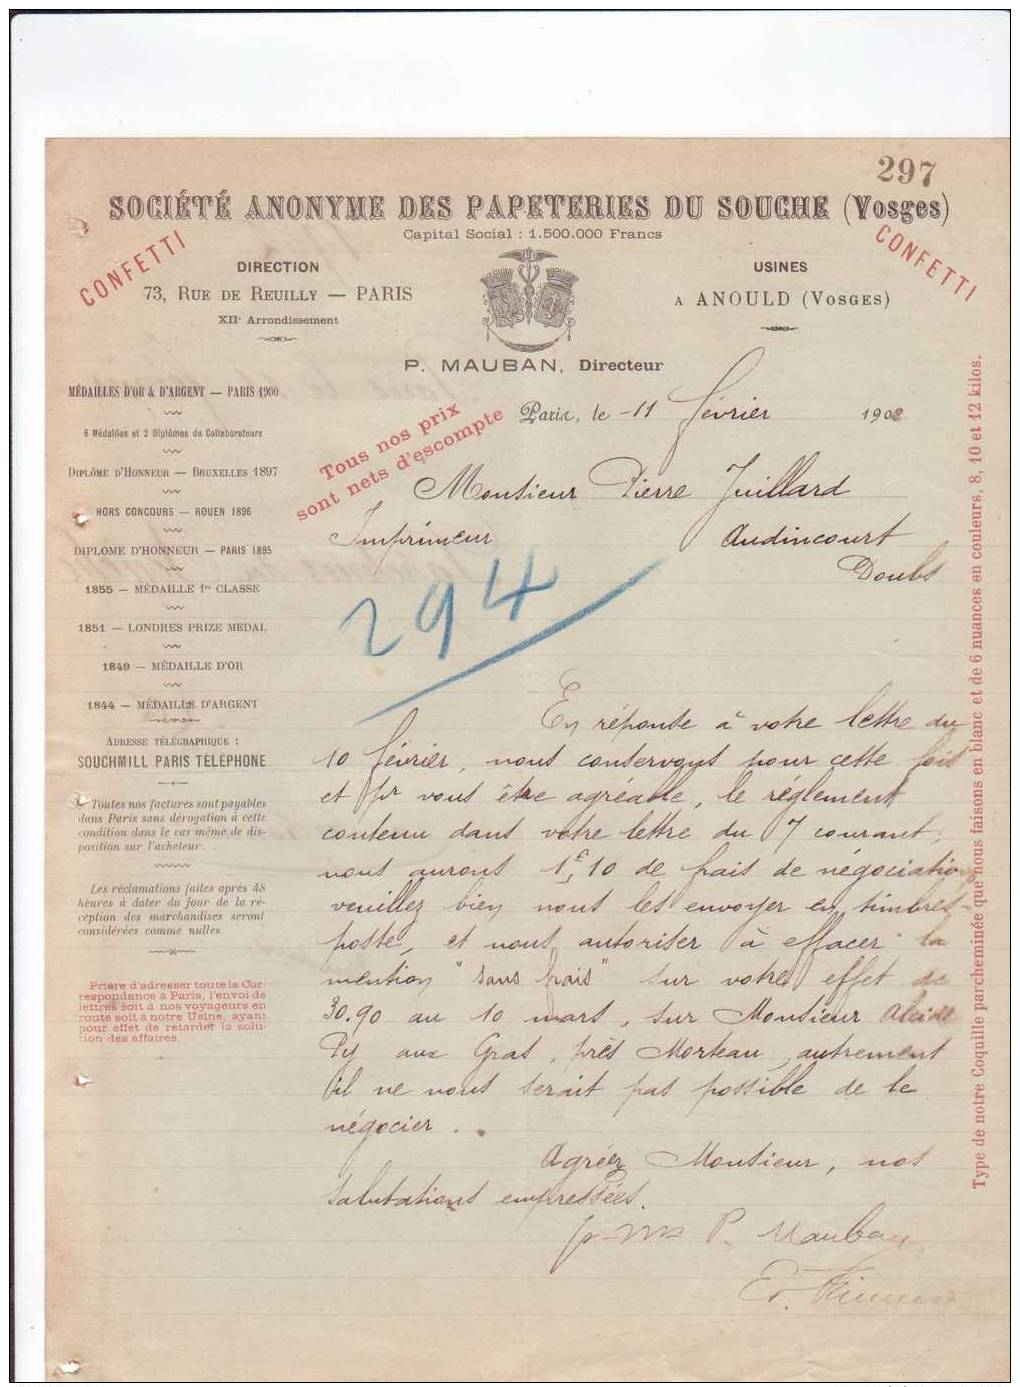 297
SOCIÉTÉ ANONYME DES PAPETERIES DU SOUCHE (Vosges)
Capital Social : 1.500.000 Francs
CONFETTI
CONFETTI
DIRECTION
73, RUE DE REUILLY — PARIS
XIIe Arrondissement
USINES
A ANOULD (VOSGES)
P. MAUBAN, Directeur
MÉDAILLES D'OR & D'ARGENT — PARIS 1900
6 Médailles et 2 Diplômes de Collaborateurs
DIPLÔME D'HONNEUR — BRUXELLES 1897
HORS CONCOURS — ROUEN 1896
DIPLOME D'HONNEUR — PARIS 1895
1855 — MÉDAILLE 1re CLASSE
1851 — LONDRES PRIZE MEDAL
1849 — MÉDAILLE D'OR
1844 — MÉDAILLE D'ARGENT
ADRESSE TÉLÉGRAPHIQUE :
SOUCHMILL PARIS TÉLÉPHONE
Toutes nos factures sont payables
dans Paris sans dérogation à cette
condition dans le cas même de dis-
position sur l'acheteur.
Les réclamations faites après 48
heures à dater du jour de la ré-
ception des marchandises seront
considérées comme nulles.
Prière d'adresser toute la Cor-
respondance à Paris, l'envoi de
lettres soit à nos voyageurs en
route soit à notre Usine, ayant
pour effet de retarder la solu-
tion des affaires.
Tous nos prix
sont nets d'escompte
Paris, le 11 février 190
Monsieur Pierre Juillard
Imprimeur Audincourt
Doubs
294
En réponse à votre lettre du
10 février, nous conservons pour cette fois
et pr vous être agréable, le réglement
contenu dans votre lettre du 7 courant,
nous aurons 1f,10 de frais de négociation
veuillez bien nous les envoyer en timbres-
poste, et nous autoriser à effacer la
mention "sans frais" sur votre effet de
30.90 au 10 mars, sur Monsieur Alcide
aux Gras, près Morteau, autrement
il ne nous serait pas possible de le
négocier.
Agréez Monsieur, nos
salutations empressées.
P. Mauban
Type de notre Coquille parcheminée que nous faisons en blanc et de 6 nuances en couleurs, 8, 10 et 12 kilos.